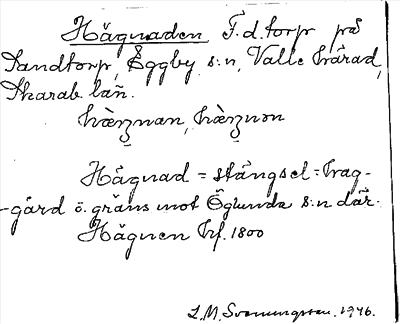 Hägnaden F.d. torp på
Sandtorp, Eggby s:n, Valle härad,
Skarab. län.

Hägnad = stängsel = hag-
-gård ö. gräns mot Öglunda s:n där.
Hägnen hf. 1800
L. M. Svenungsson. 1946.